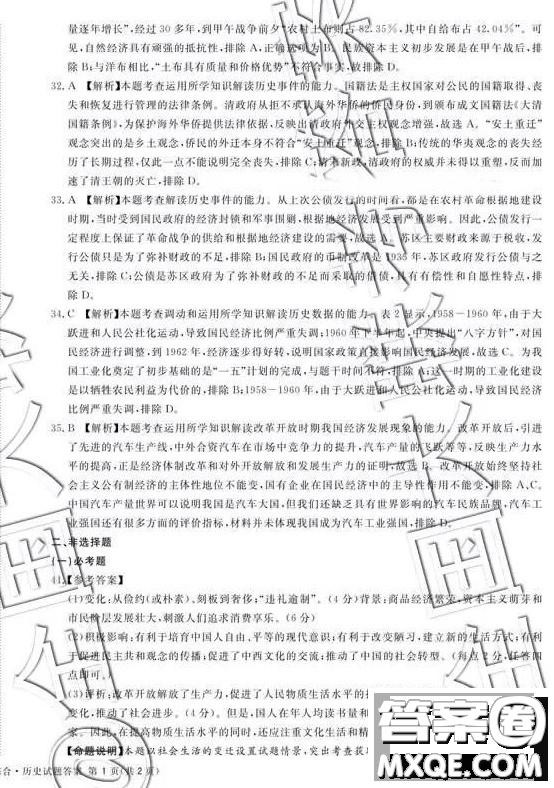 量逐年增长”,经过30多年,到甲午战争前夕“农村土布则占82.35%,其中自给布占42.04%”。可
见,自然经济具有顽强的抵抗性,排除A,正确选项为B。民族资本主义初步发展是在甲午战后,排
除B;与洋布相比,“土布具有质量和价格优势”不符合事实,故排除D。
32.A 【解析】本题考查运用所学知识解读历史事件的能力。国籍法是主权国家对公民的国籍取得、丧
失和恢复进行管理的法律条例。清政府从拒不承认海外华侨的侨民身份,到颁布成文国籍法《大清
国籍条例》,为保护海外华侨提供法律依据,反映出清政府外交主权观念增强,故选A。“安土重迁”
观念突出的是乡土观念,侨民的外迁本身不符合“安土重迁”观念,排除B;传统的华夷观念的丧失经
历了长期过程,仅此一点不能说明完全丧失,排除C;清末新政,清政府的权威并未得以重塑,反而加
速了清王朝的灭亡,排除D。
33.A 【解析】本题考查解读历史事件的能力。从上次公债发行的时间看,都是在农村革命根据地建设
时期,当时受到国民政府的经济封锁和军事围剿,根据地经济发展受到严重影响。因此,公债发行一
定程度上保证了革命战争的供给和根据地经济建设的需要,故选A。苏区主要财政来源于税收,发
行公债只是为了弥补财政的不足,排除B;国民政府的币制改革是1935年,苏区政府发行公债与之
无关,排除C;公债是苏区政府为了弥补财政的不足而采取的借债,具有有偿性和自愿性特点,排
除D。
34.C 【解析】本题考查调动和运用所学知识解读历史数据的能力。表2显示,1958-1960年,由于大
跃进和人民公社化运动,导致国民经济比例严重失调;1960年下半年起,中央提出“八字方针”,对国
民经济进行调整,到1962年,经济逐步得好转,说明国家政策直接影响国民经济发展,故选C。为我
国工业化奠定了初步基础的是“一五”计划的完成,与题干时间不符,排除A;这一时期的工业化建设
是以牺牲农民利益为代价的,排除B;1958-1960年,由于大跃进和人民公社化运动,导致国民经济
比例严重失调,排除D。
35.B 【解析】本题考查运用所学知识解读改革开放时期我国经济发展现象的能力。改革开放后,引进
了先进的汽车生产线,中外合资汽车在市场中竞争力的提升,汽车产量的飞跃等等,反映生产力水
平的提高,正是经济体制改革和对外开放解放和发展生产力的证明,故选B。改革开放始终坚持社
会主义公有制经济的主体性地位不能变,国有企业在国民经济中的主导性作用不能变,排除A、C。
中国汽车产量世界可以说明我国是汽车大国,但我们还缺乏具有世界影响的汽车民族品牌,汽车工
业强国还有很多方面的评价指标,材料并未体现我国成为汽车工业强国,排除D。
二、非选择题
(一)必考题
41.【参考答案】
(1)变化:从俭约(或朴素)、刻板到奢侈;“违礼逾制”。(4分)背景:商品经济繁荣,资本主义萌芽和
市民阶层发展壮大,刺激人们追求消费享乐。(6分)
(2)积极影响:有利于培育中国人自由、平等的现代意识;有利于改变陋习,建立新的生活方式;有利
于促进民主共和观念的传播;促进了中西文化的交流;推动了中国的社会转型。(每点2分,任答四
点即可。)
(3)评析:改革开放解放了生产力,促进了人民物质生活水平的
变化,推动了社会进步。(4分)。但是,国人在年人均读书量和
家。因此,在提高物质生活水平的同时,还应注重文化生活和精
【命题说明】本题以社会生活的变迁设置试题情景,突出考查获
综合·历史试题答案 第1页(共2页)
答案卷